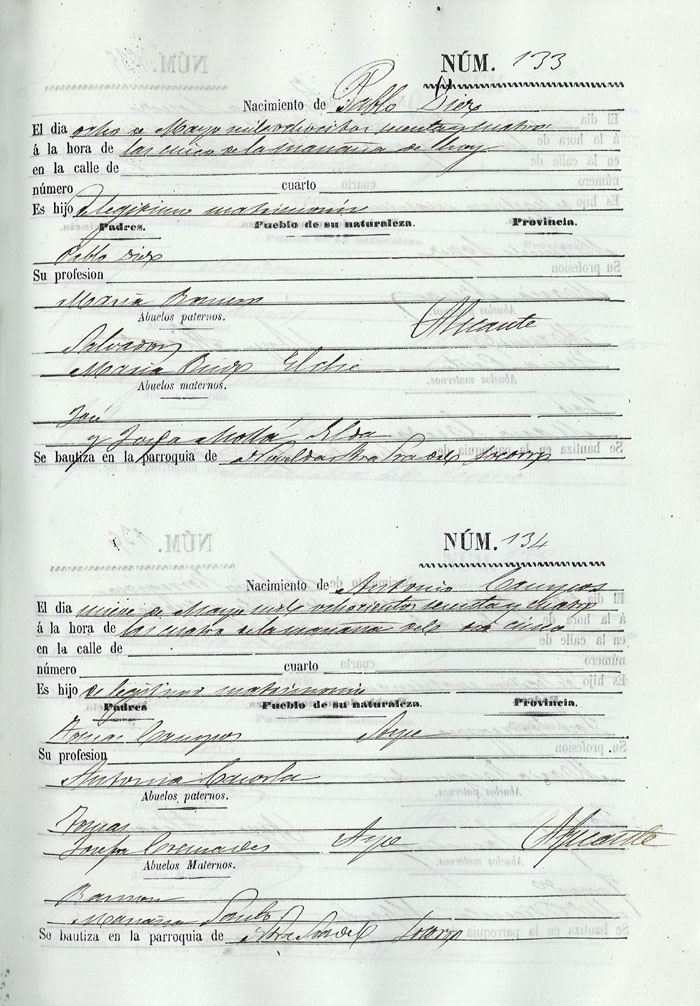 NÚM. 133
Nacimiento de Pablo Diez
El dia ocho de Mayo mil ochocientos sesenta y cuatro
á la hora de las cinco de la mañana de hoy
en la calle de
número cuarto
Es hijo de legitimo matrimonio
Padres. Pueblo de su naturaleza. Provincia.
Pablo Diez
Su profesion
Maria Romero
Abuelos paternos.
Alicante
Salvador
Maria Elche
Abuelos maternos.
José
y Josefa Mollá Elda
Se bautiza en la parroquia de Ntra Sra del Socorro
NÚM. 134
Nacimiento de Antonio Campos
El dia nueve de Mayo mil ochocientos sesenta y cuatro
á la hora de las cuatro de la mañana del dia
en la calle de
número cuarto
Es hijo de legitimo matrimonio
Padres Pueblo de su naturaleza. Provincia.
Tomas Campos Aspe
Su profesion
Antonia Cazorla
Abuelos paternos.
Tomas
Josefa Cremades Aspe Alicante
Abuelos Maternos.
Ramon
Mariana
Se bautiza en la parroquia de Ntra Sra del Socorro